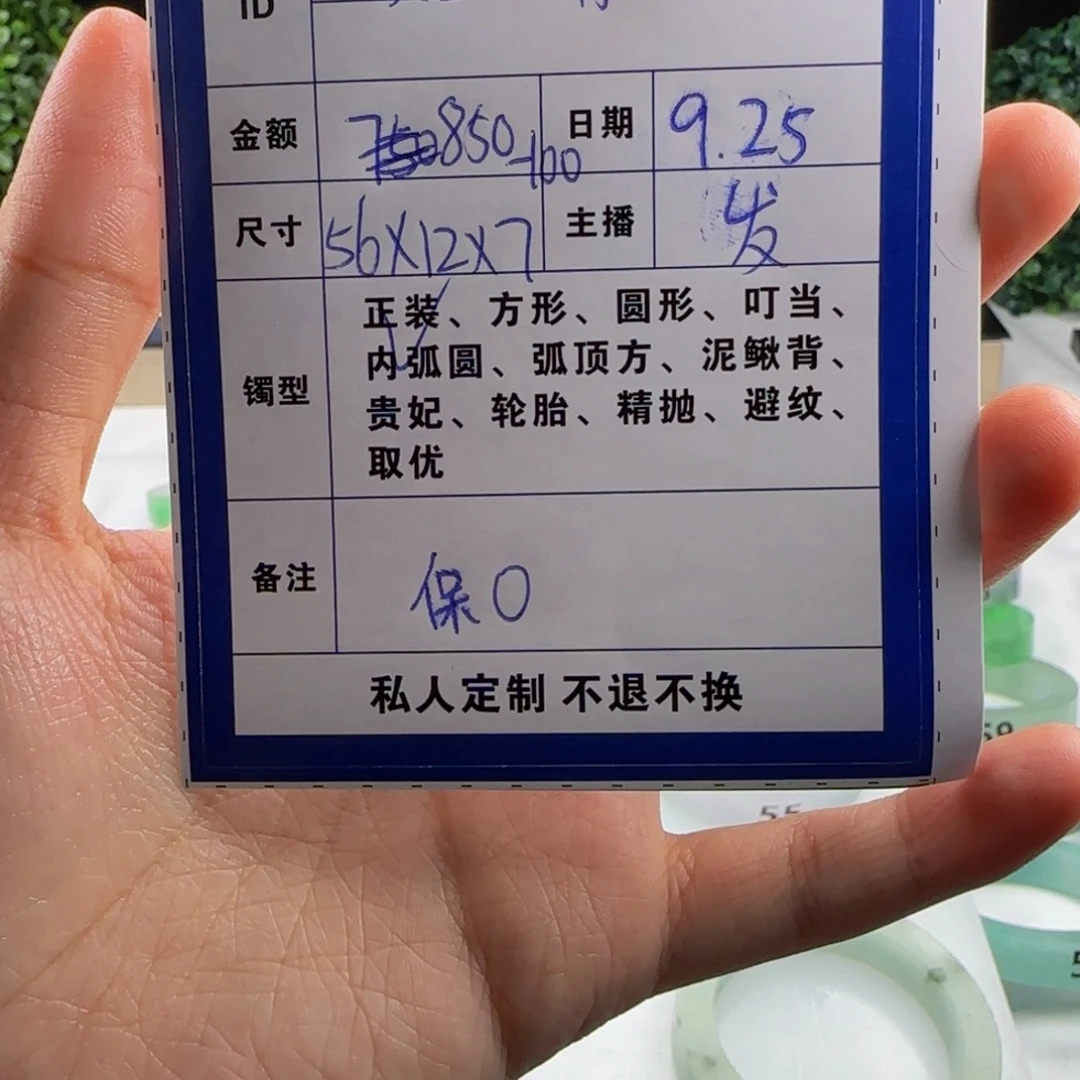 ID
金额 850 -100 日期 9.25
尺寸 56X12X7 主播 发
镯型 正装、方形、圆形、叮当、
内弧圆、弧顶方、泥鳅背、
贵妃、轮胎、精抛、避纹、
取优
备注 保0
私人定制 不退不换
59
55
5